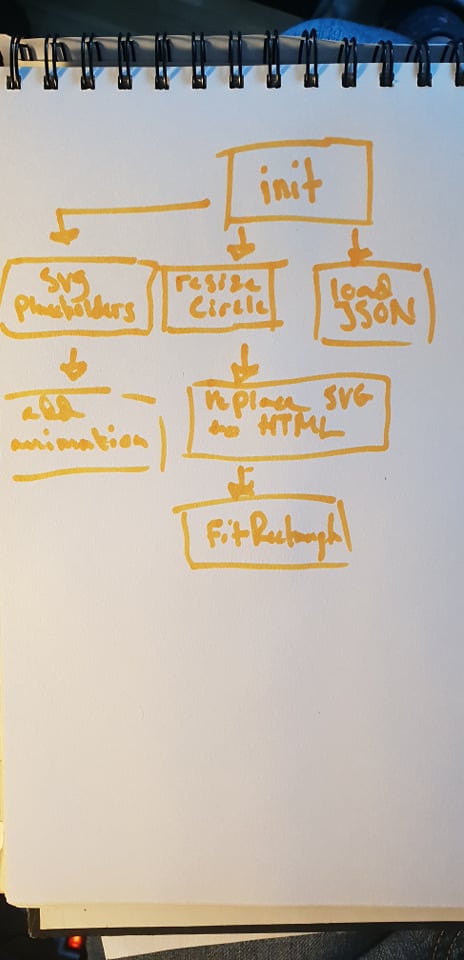 init
svg
placeholders
resize
Circle
load
JSON
add
animation
replace SVG
to HTML
FitRectangle